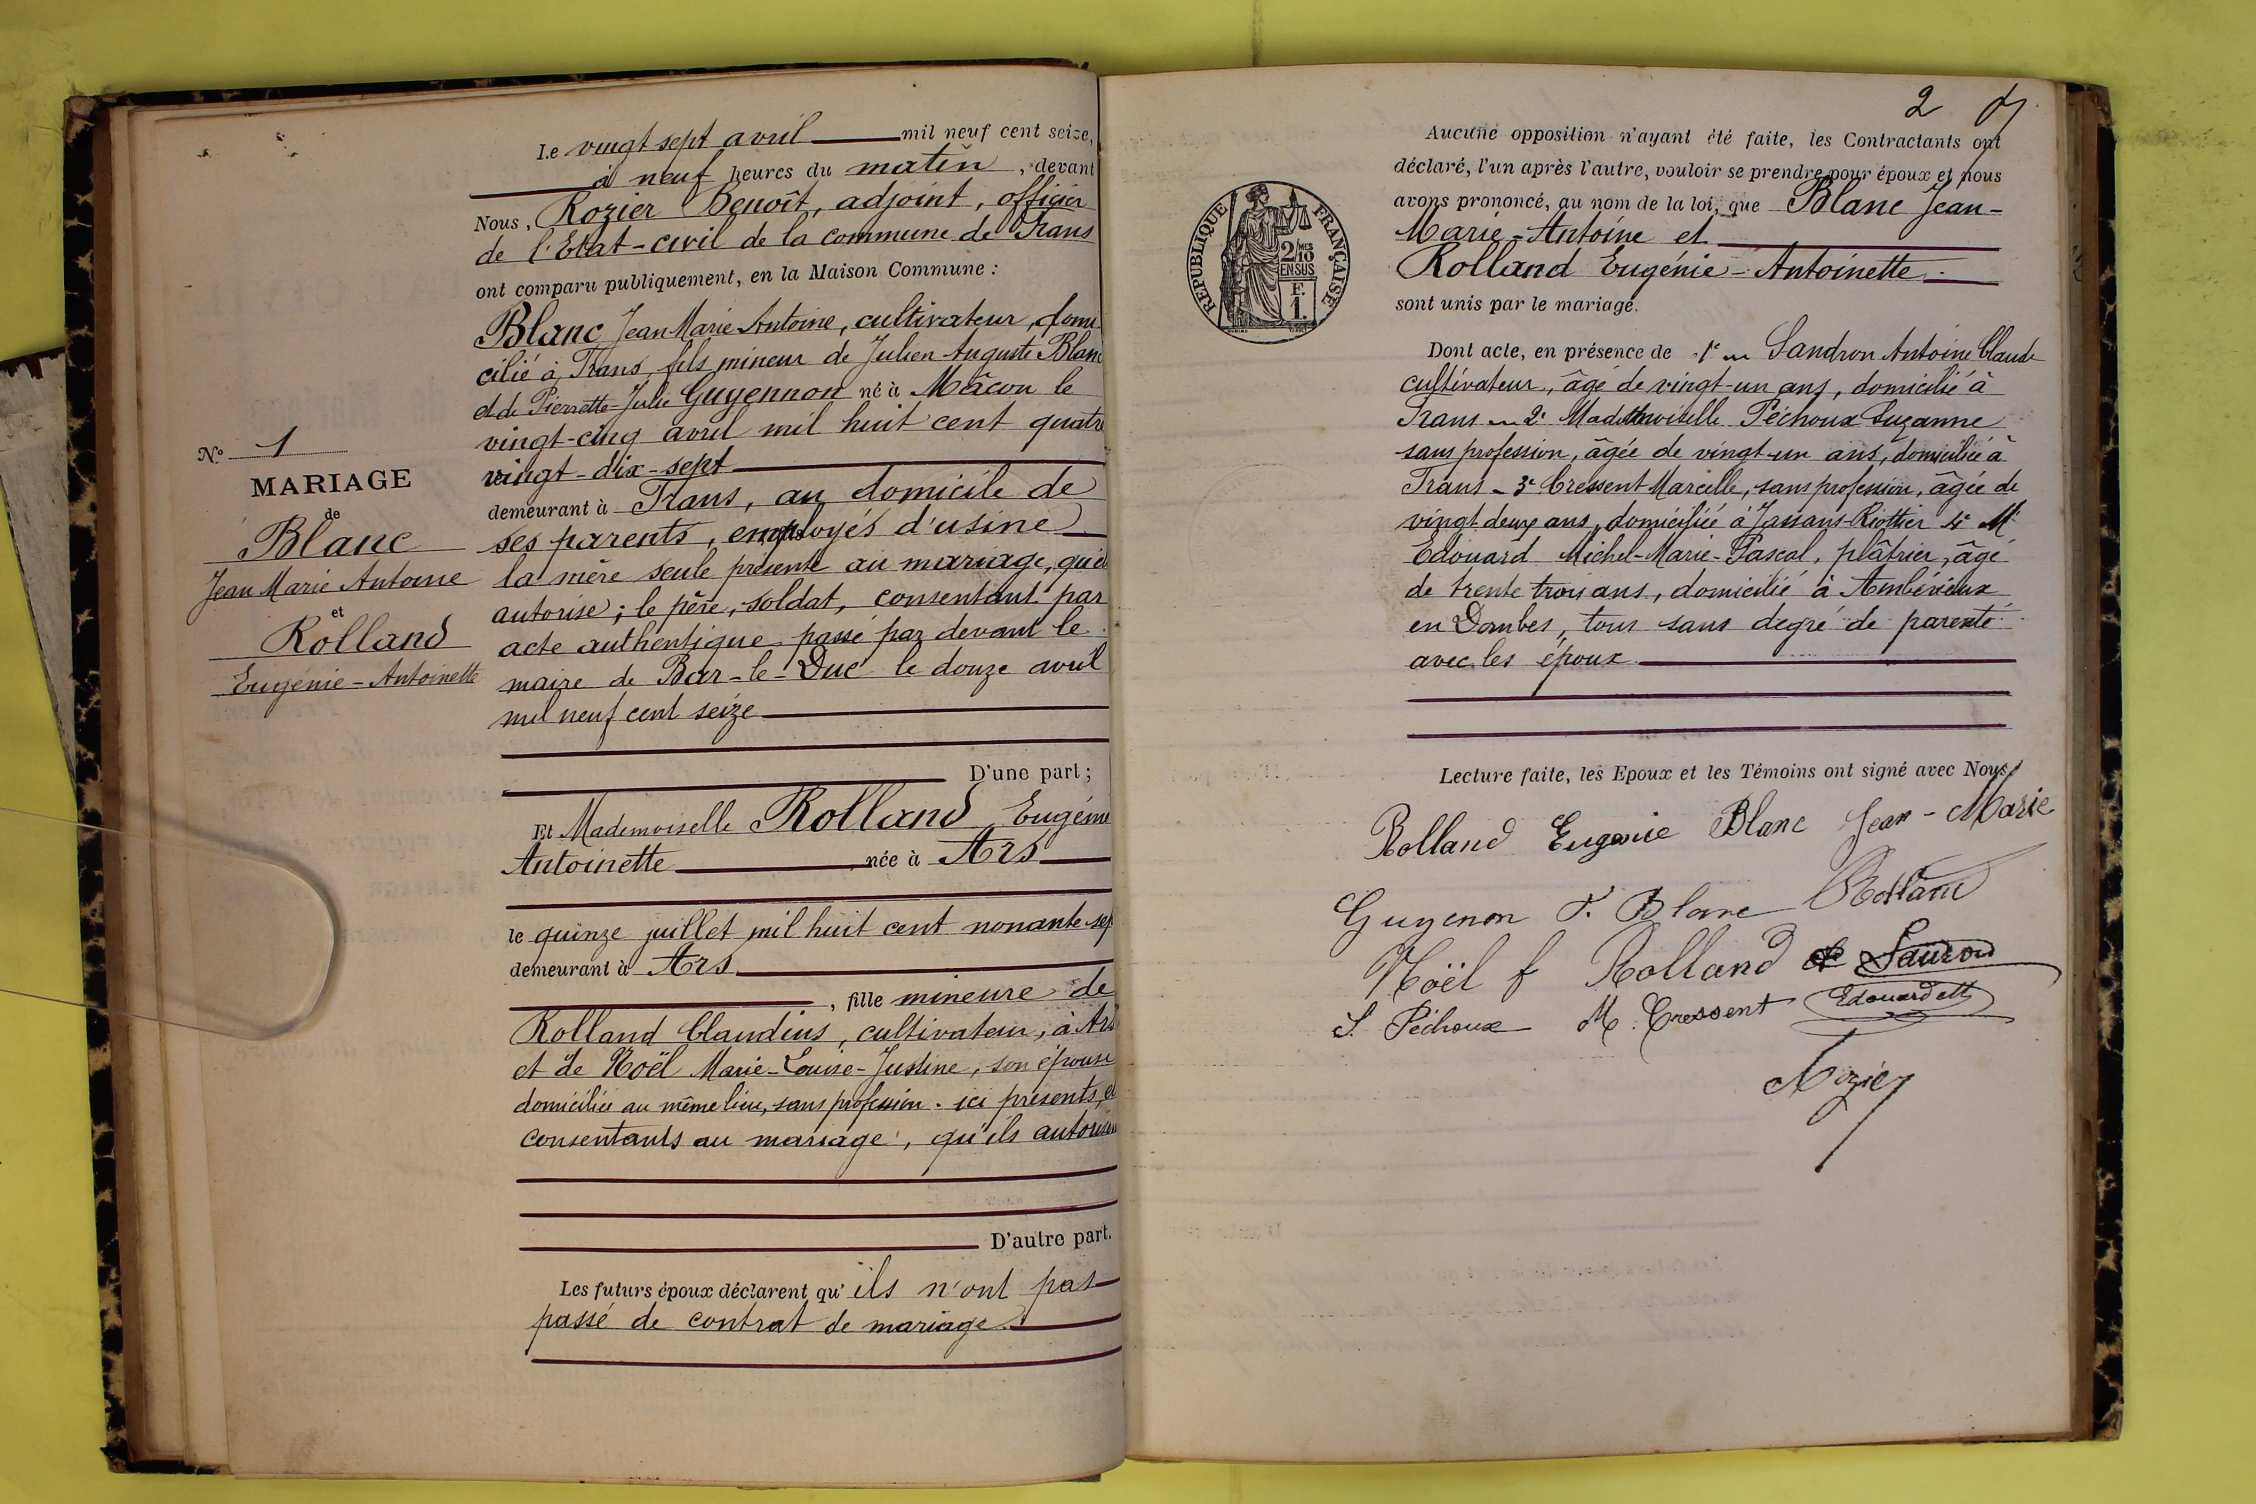 Le vingt sept avril mil neuf cent seize,
à neuf heures du matin, devant
Nous, Rozier Benoît, adjoint, officier
de l'Etat-civil de la commune de Frans
ont comparu publiquement, en la Maison Commune :
Blanc Jean Marie Antoine, cultivateur, domi
cilié à Frans, fils mineur de Julien Auguste Blanc
et de Pierrette-Julie Guyennon né à Mâcon le
vingt-cinq avril mil huit cent quatre
vingt-dix-sept
demeurant à Frans, au domicile de
ses parents, employés d'usine
la mère seule présente au mariage, qu'el
autorise ; le père, soldat, consentant par
acte authentique passé par devant le
maire de Bar-le-Duc le douze avril
mil neuf cent seize
D'une part ;
Et Mademoiselle Rolland Eugénie
Antoinette née à Ars
le quinze juillet mil huit cent nonante sep
demeurant à Ars
, fille mineure de
Rolland Claudius, cultivateur, à Ars
et de Noël Marie-Louise-Justine, son épouse
domiciliée au même lieu, sans profession. ici présents, et
consentants au mariage, qu'ils autorisen
D'autre part.
Les futurs époux déclarent qu'ils n'ont pas
passé de contrat de mariage.
N° 1
MARIAGE
de
Blanc
Jean Marie Antoine
et
Rolland
Eugénie-Antoinette
2
Aucune opposition n'ayant été faite, les Contractants ont
déclaré, l'un après l'autre, vouloir se prendre pour époux et nous
avons prononcé, au nom de la loi, que Blanc Jean-
Marie-Antoine et
Rolland Eugénie-Antoinette.
sont unis par le mariage.
RÉPUBLIQUE FRANÇAISE
2/10 MES
EN SUS
F.
1.
Dont acte, en présence de 1° Sandron Antoine Claude
cultivateur, âgé de vingt-un ans, domicilié à
Frans 2° Mademoiselle Péchoux Suzanne
sans profession, âgée de vingt-un ans, domiciliée à
Frans - 3° Cressent Marcelle, sans profession, âgée de
vingt deux ans, domiciliée à Jassans-Riottier 4° Mr
Edouard Michel-Marie-Pascal, plâtrier, âgé
de trente trois ans, domicilié à Ambérieux
en Dombes, tous sans degré de parenté
avec les époux.
Lecture faite, les Epoux et les Témoins ont signé avec Nous.
Rolland Eugenie Blanc Jean-Marie
Guyenon F. Blanc Rolland
Noël f Rolland
S. Péchoux M. Cressent Edouard
Rozier